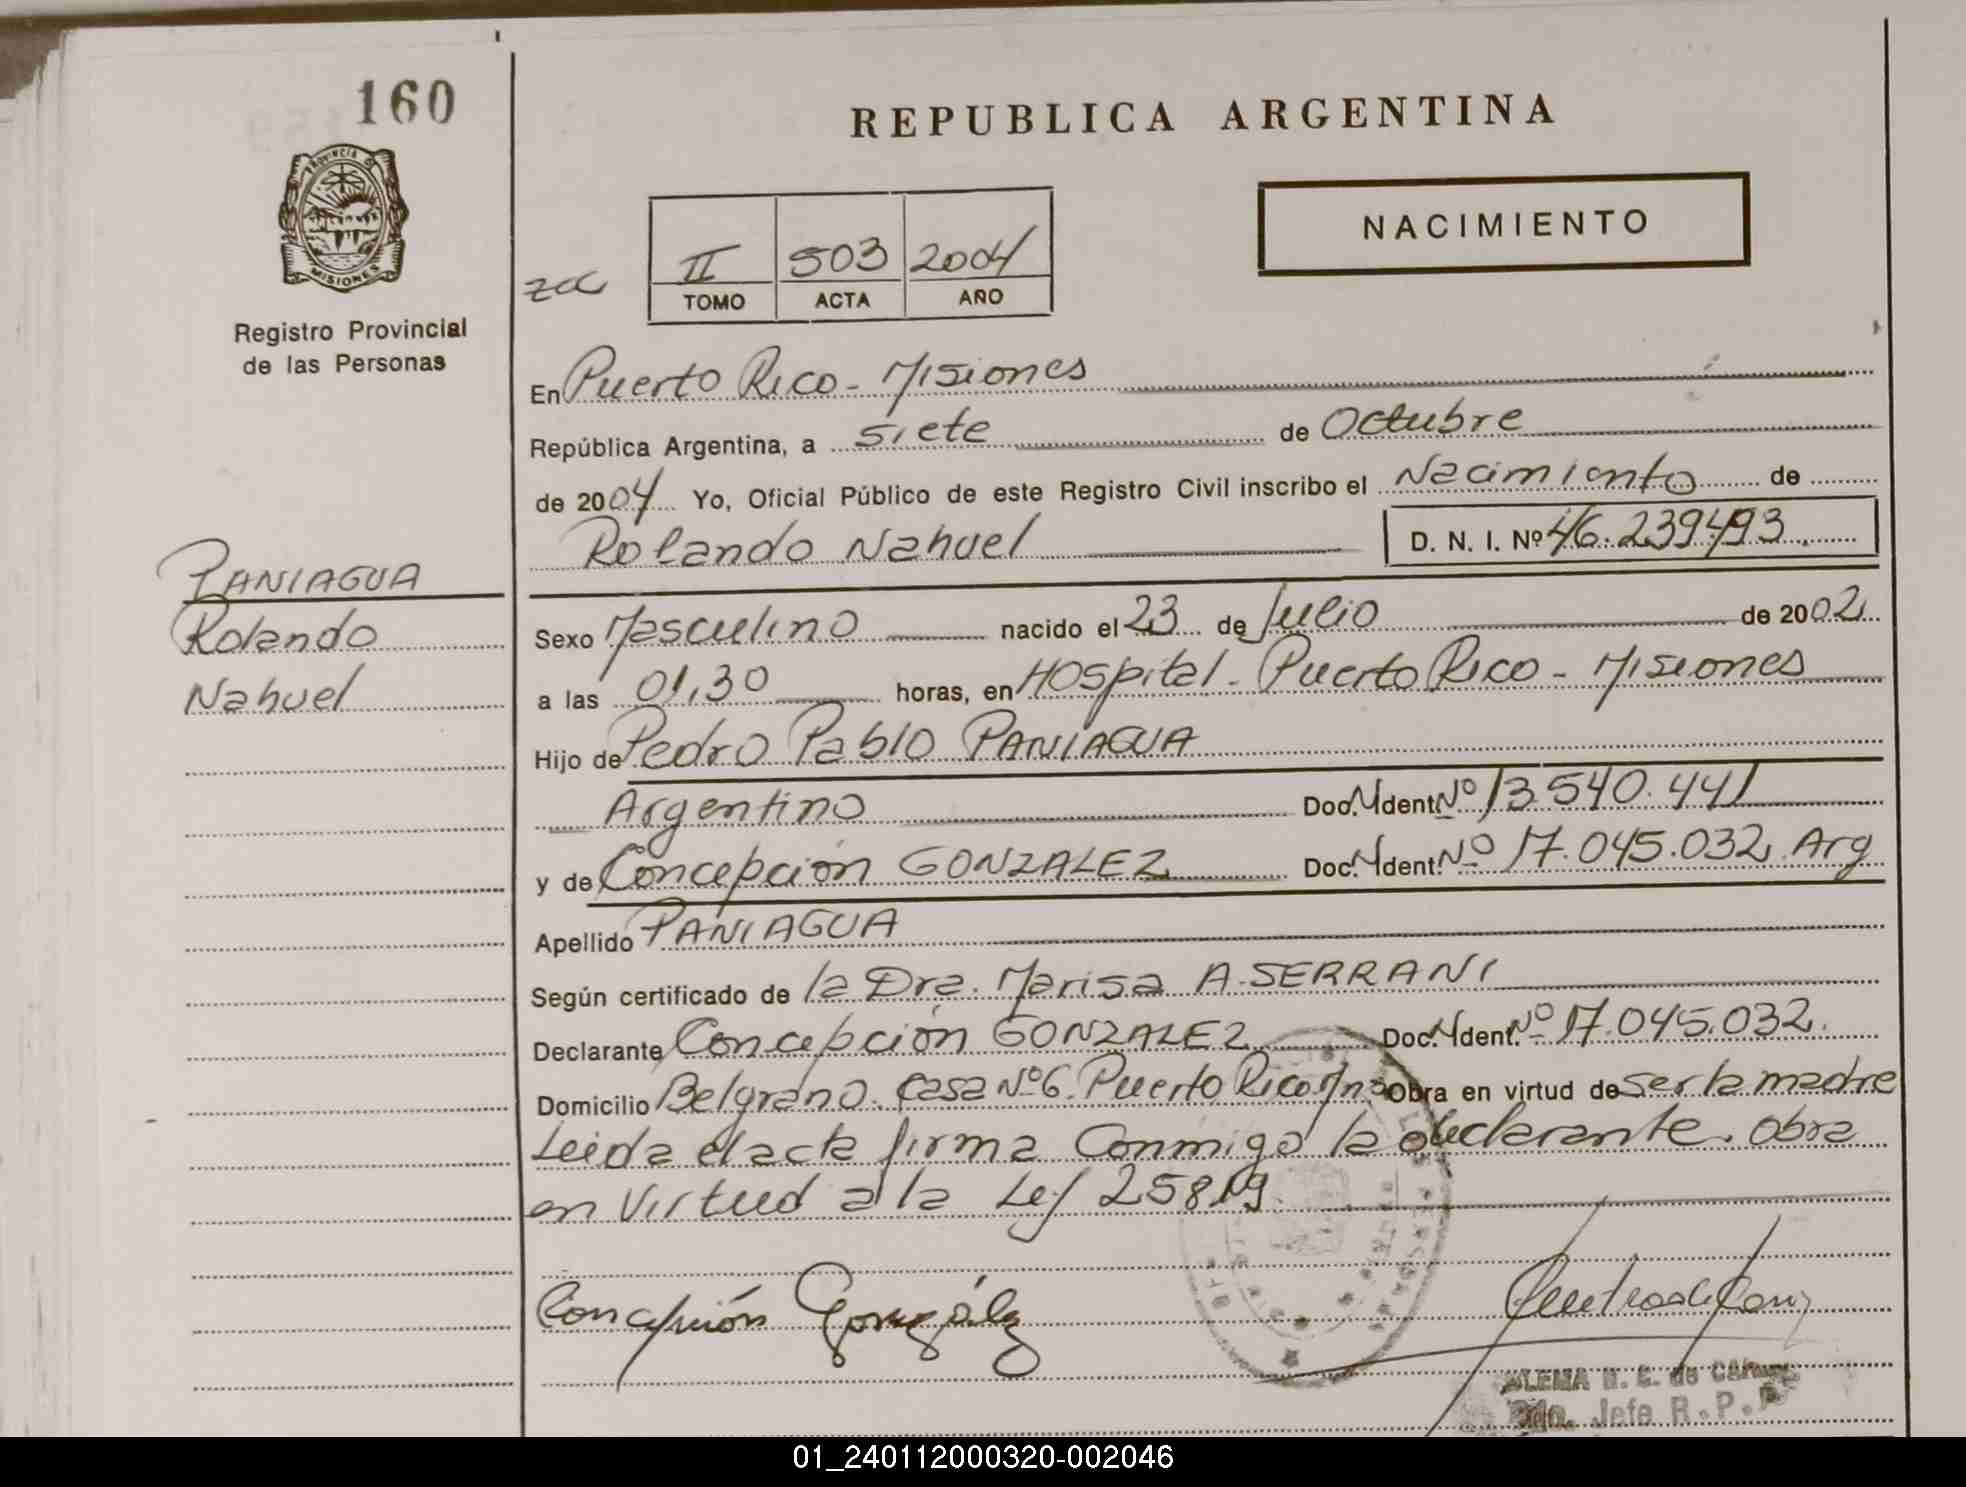 160
REPUBLICA ARGENTINA
PROVINCIA D
MISIONES
NACIMIENTO
II 503 2004
TOMO ACTA AÑO
Registro Provincial
de las Personas
En Puerto Rico - Misiones
República Argentina, a siete de Octubre
de 2004 Yo, Oficial Público de este Registro Civil inscribo el Nacimiento de
Rolando Nahuel D. N. I. Nº 46.239.493
PANIAGUA
Rolando
Nahuel
Sexo Masculino nacido el 23 de Julio de 2002
a las 01,30 horas, en Hospital - Puerto Rico - Misiones
Hijo de Pedro Pablo PANIAGUA
Argentino Doc. Ident. Nº 13.540.441
y de Concepción GONZALEZ Doc. Ident. Nº 17.045.032 Arg
Apellido PANIAGUA
Según certificado de la Dra. Marisa A. SERRANI
Declarante Concepción GONZALEZ Doc. Ident. Nº 17.045.032.
Domicilio Belgrano. Casa Nº 6. Puerto Rico Obra en virtud de ser la madre
Leida el acta firma Conmigo la declarante. Obra
en Virtud a la Ley 25819.
Concepción González
R. P. P
Jefe
01_240112000320-002046